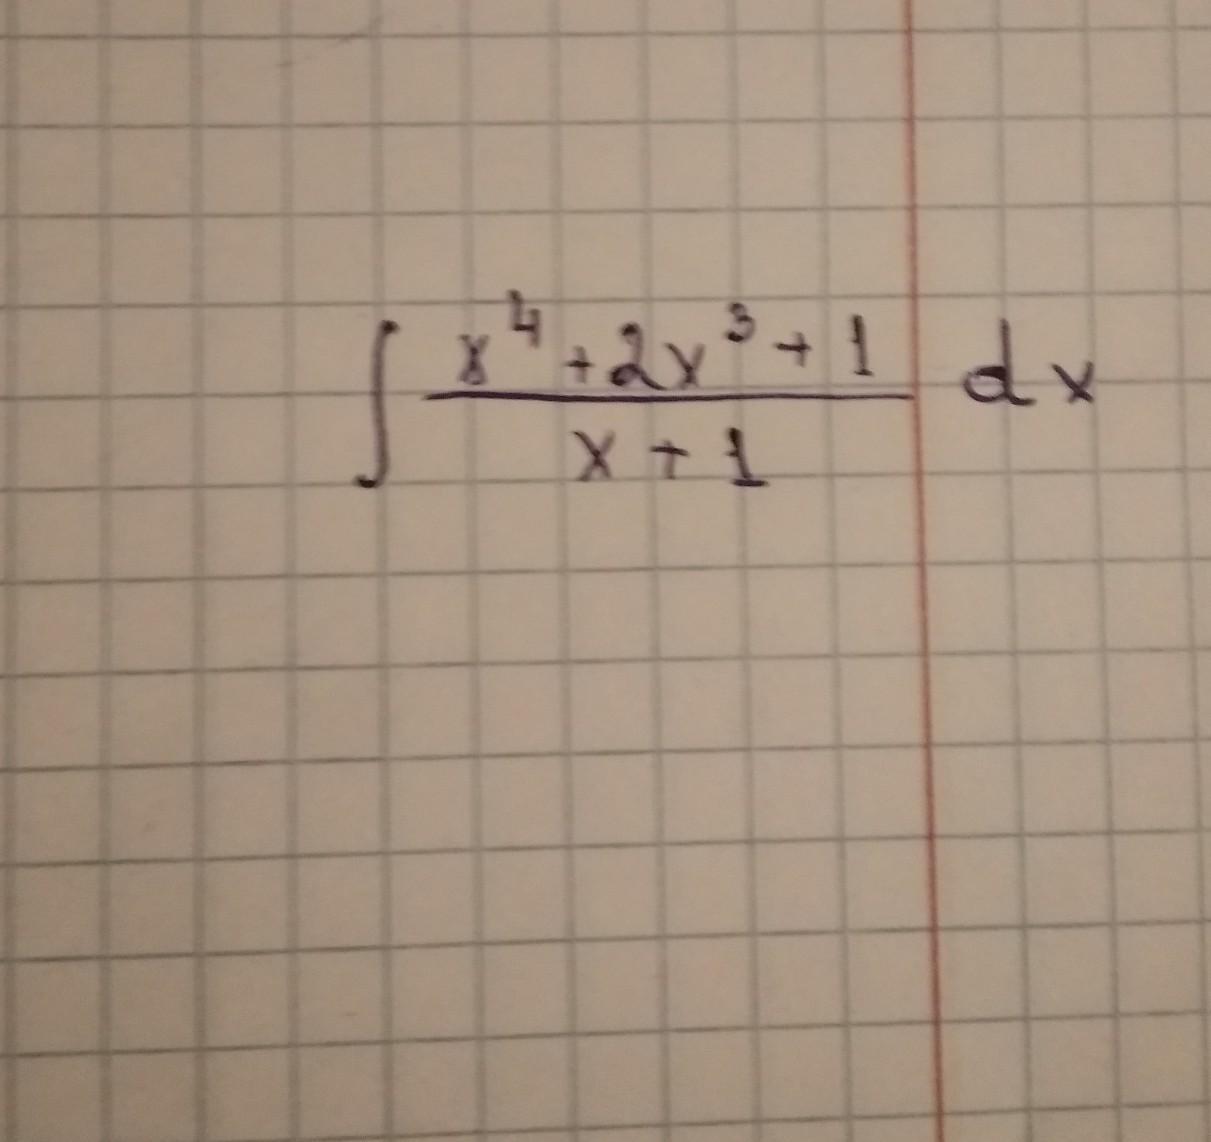 ∫ (x⁴ + 2x³ + 1)/(x + 1) dx